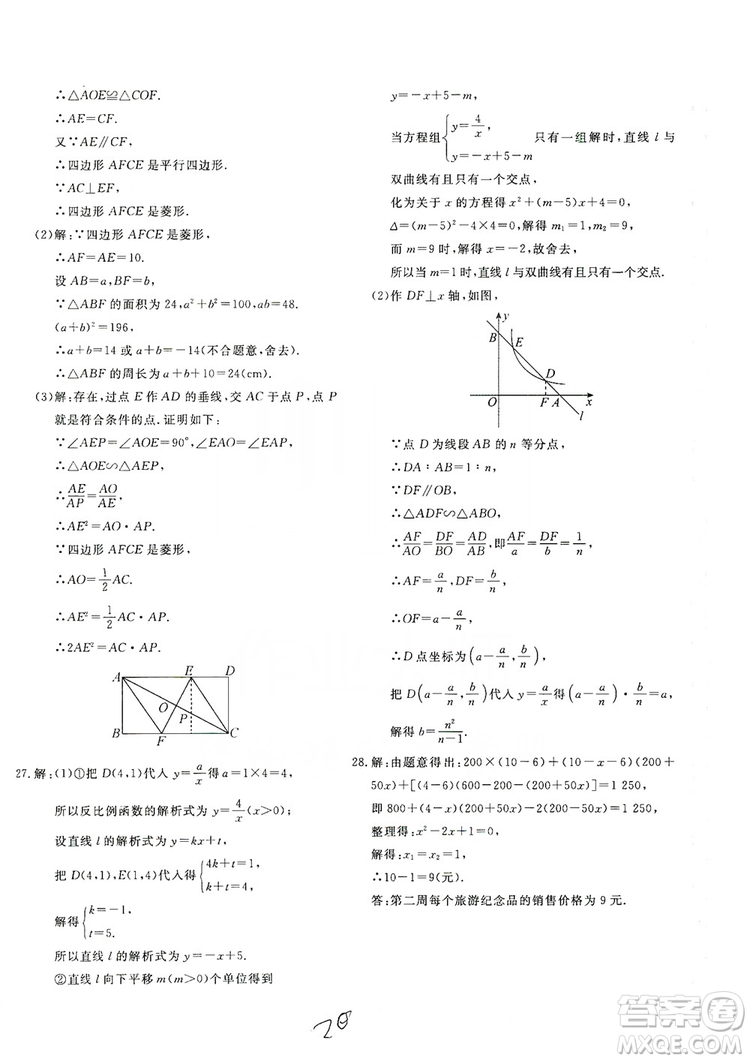 ∴△AOE≌△COF.
∴AE=CF.
又∵AE∥CF.
∴四边形 AFCE 是平行四边形.
∵AC⊥EF,
∴四边形 AFCE 是菱形.
(2)解:∵四边形 AFCE 是菱形,
∴AF=AE=10.
设 AB=a,BF=b,
∵△ABF 的面积为 24,a²+b²=100,ab=48.
(a+b)²=196,
∴a+b=14 或 a+b=-14(不合题意,舍去).
∴△ABF 的周长为 a+b+10=24(cm).
(3)解:存在,过点 E 作 AD 的垂线,交 AC 于点 P,点 P
就是符合条件的点. 证明如下:
∵∠AEP=∠AOE=90°,∠EAO=∠EAP,
∴△AOE∽△AEP,
∴AE/AP=AO/AE.
∴AE²=AO·AP.
∵四边形 AFCE 是菱形,
∴AO=1/2 AC.
∴AE²=1/2 AC·AP.
∴2AE²=AC·AP.
A E D
O
P
B F C
27. 解:(1)①把 D(4,1)代入 y=a/x得 a=1×4=4,
所以反比例函数的解析式为 y=4/x(x>0);
设直线 l 的解析式为 y=kx+t,
把 D(4,1),E(1,4)代入得{4k+t=1, k+t=4,
解得{k=-1, t=5.
所以直线 l 的解析式为 y=-x+5;
②直线 l 向下平移 m(m>0)个单位得到
y=-x+5-m,
当方程组{y=4/x, y=-x+5-m 只有一组解时,直线 l 与
双曲线有且只有一个交点,
化为关于 x 的方程得 x²+(m-5)x+4=0,
Δ=(m-5)²-4×4=0,解得 m₁=1,m₂=9,
而 m=9 时,解得 x=-2,故舍去,
所以当 m=1 时,直线 l 与双曲线有且只有一个交点.
(2)作 DF⊥x 轴,如图,
y
B E
D
O F A x
l
∵点 D 为线段 AB 的 n 等分点,
∴DA∶AB=1∶n,
∵DF∥OB,
∴△ADF∽△ABO,
∴AF/AO=DF/BO=AD/AB,即AF/a=DF/b=1/n,
∴AF=a/n,DF=b/n,
∴OF=a-a/n,
∴D 点坐标为(a-a/n,b/n),
把 D(a-a/n,b/n)代入 y=a/x得(a-a/n)·b/n=a,
解得 b=n²/(n-1).
28. 解:由题意得出:200×(10-6)+(10-x-6)(200+
50x)+[(4-6)(600-200-(200+50x)]=1 250,
即 800+(4-x)(200+50x)-2(200-50x)=1 250,
整理得:x²-2x+1=0,
解得:x₁=x₂=1,
∴10-1=9(元).
答:第二周每个旅游纪念品的销售价格为 9 元.
20
答案圈
MXQE.COM